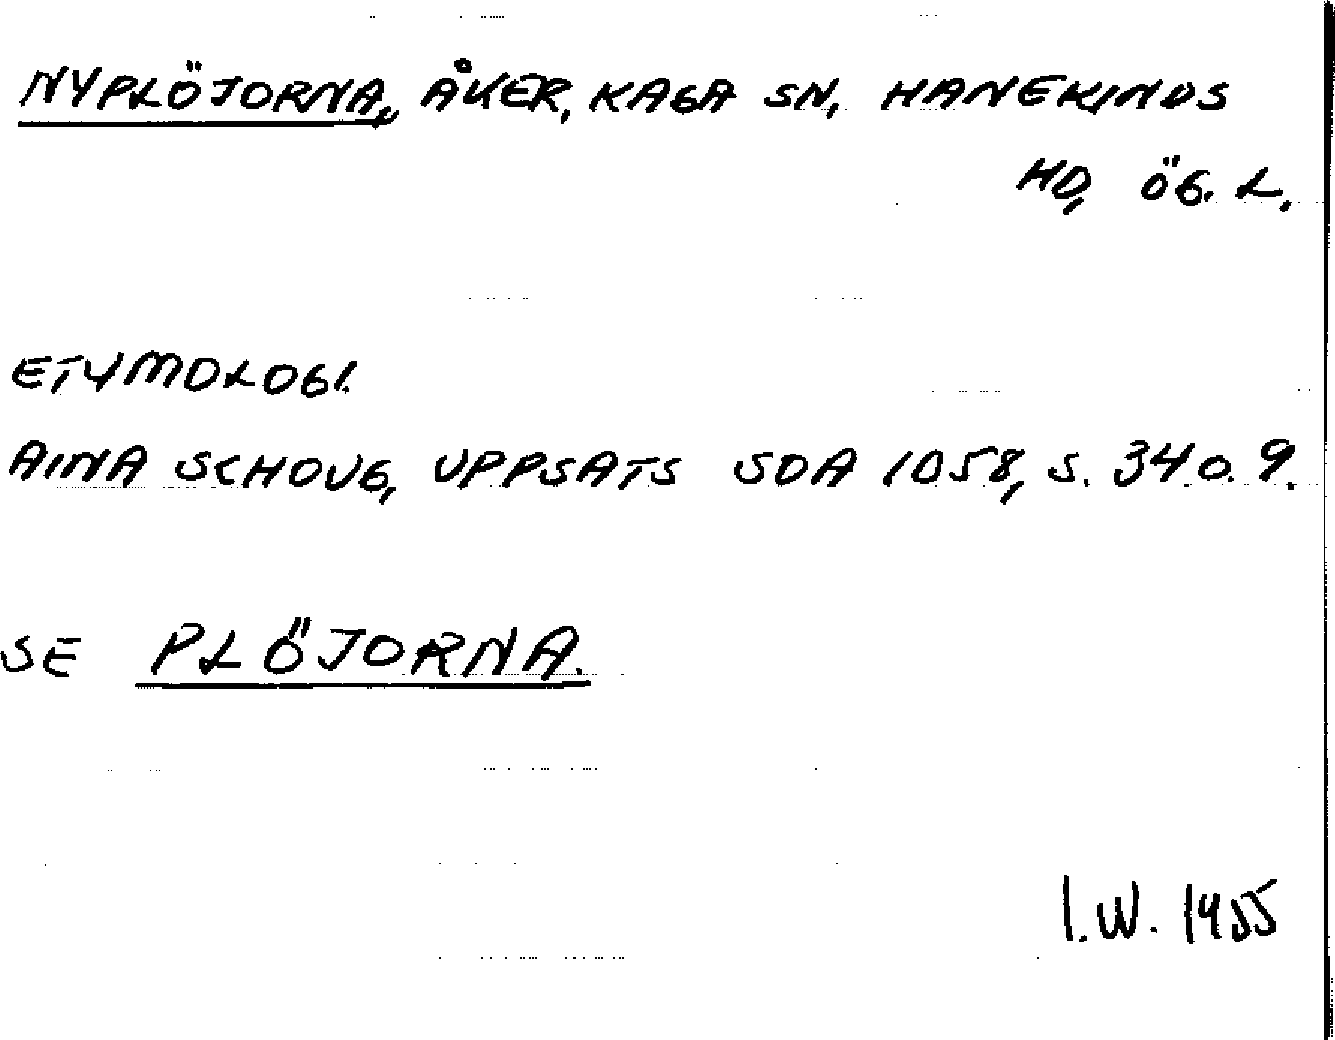 NYPLÖJORNA, ÅKER, KAGA SN, HANEKINDS
HD, ÖG. L.
ETYMOLOGI.
AINA SCHOUG, UPPSATS SOA 1058, S. 34 O. 9.
SE PLÖJORNA.
I.W. 1955